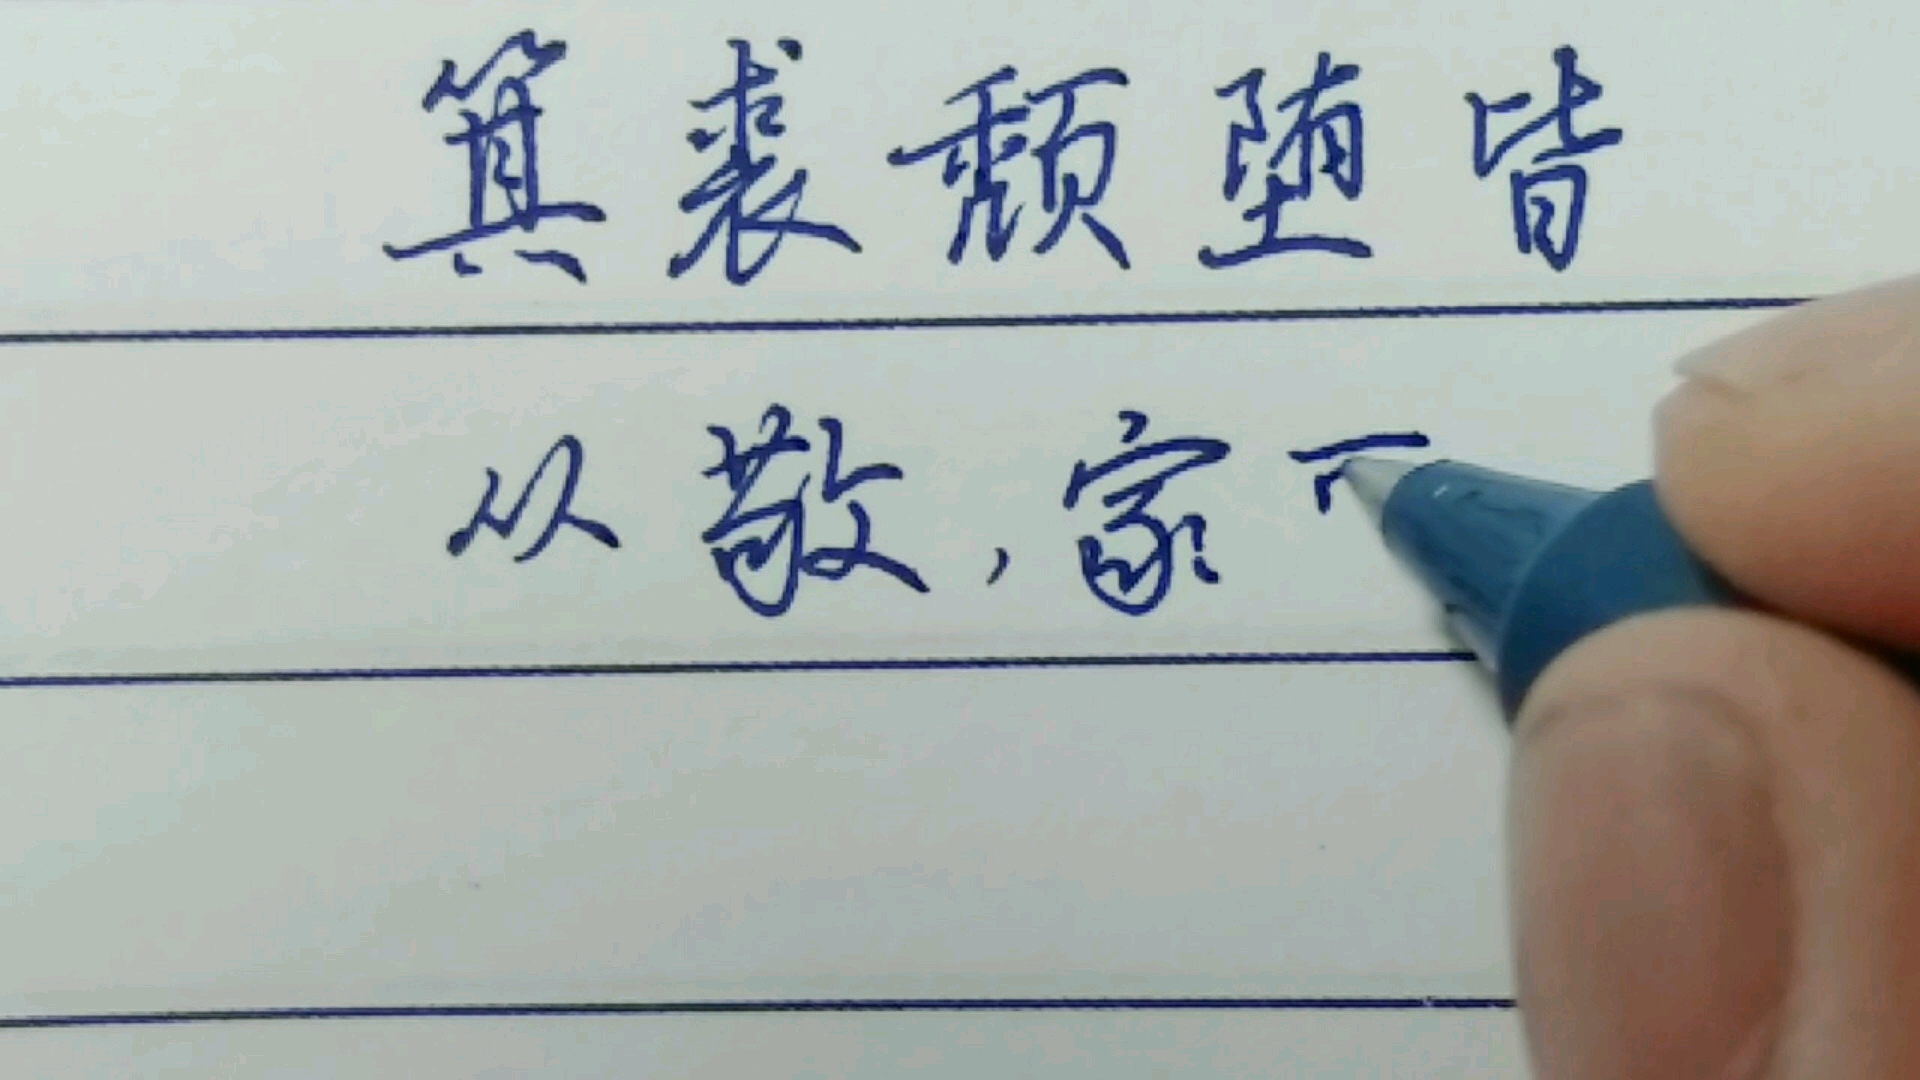 箕裘颓堕皆
从敬，家